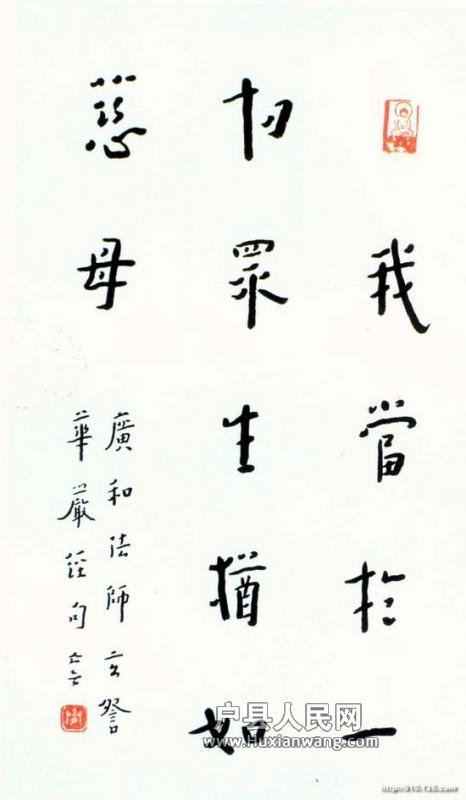 我當於一
切眾生猶如
慈母
廣和法師玄詧
華嚴經句
户县人民网
www.Huxianwang.com